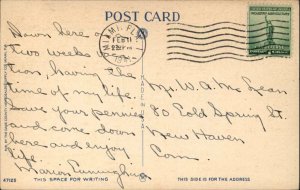 POST CARD
MIAMI, FLA.
FEB 11
UNITED STATES OF AMERICA
INDUSTRY AGRICULTURE
Down here
two weeks
now, having the
time of my life.
Save your pennies
and come down
here and enjoy
life.
Marion Cunningham
Mrs. W. A. McLean
80 Cold Spring St
New Haven
Conn.
47125 THIS SPACE FOR WRITING
THIS SIDE IS FOR THE ADDRESS